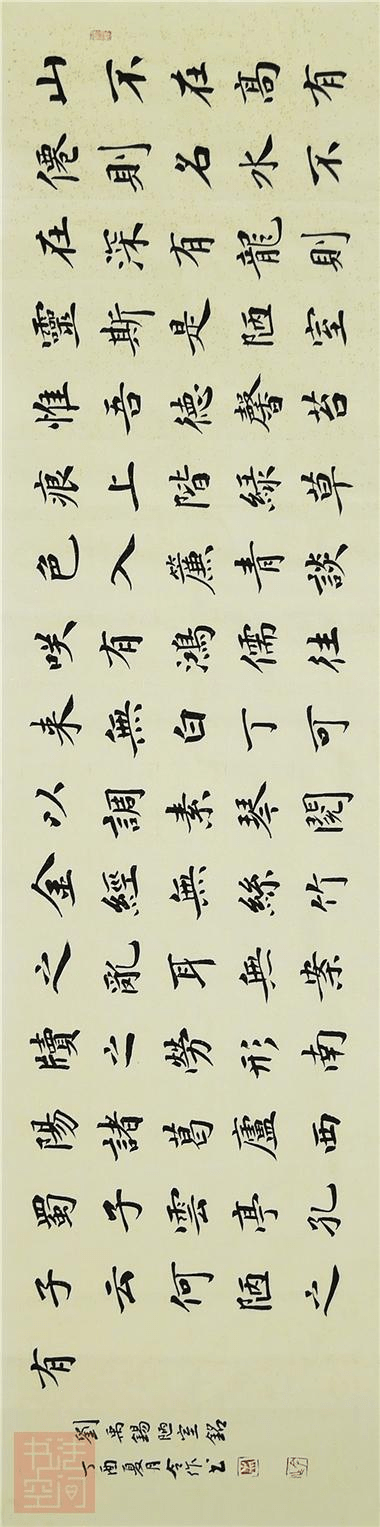 山不在高有
僊則名水不
在深有龍則
靈斯是陋室
惟吾德馨苔
痕上階綠草
色入簾青談
咲有鴻儒往
来無白丁可
以調素琴閱
金經無絲竹
之亂耳無案
牘之勞形南
陽諸葛廬西
蜀子雲亭孔
子云何陋之
有
劉禹錫陋室銘
丁酉夏月令作书
书法
空间